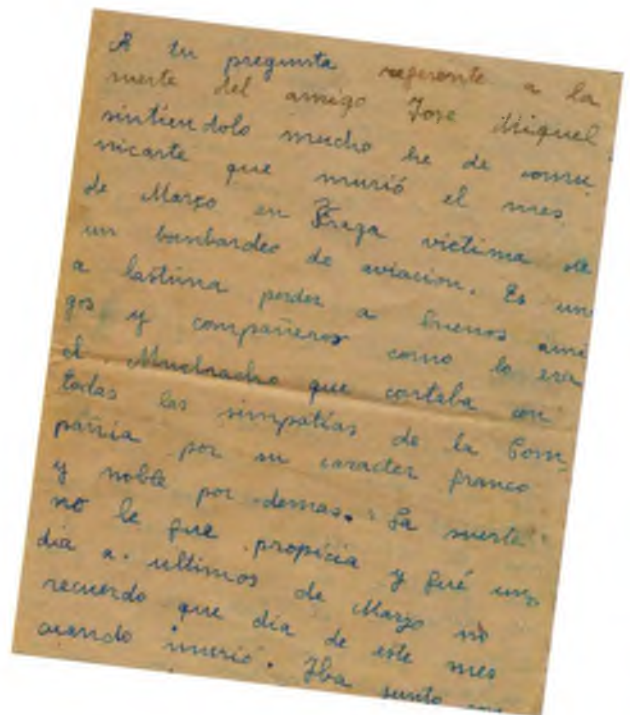 A tu pregunta referente a la
muerte del amigo Jose Miguel
sintiendolo mucho he de comu
nicarte que murió el mes
de Março en Fraga victima de
un bonbardeo de aviacion. Es un
a lastima perder a buenos ami
gos y compañeros como lo era
el Muchacho que contaba con
todas las simpatias de la Com
pañia por su caracter franco
y noble por demas. La suerte
no le fue propicia y fué un
dia a ultimos de Março no
recuerdo que dia de este mes
cuando murió. Iba junto